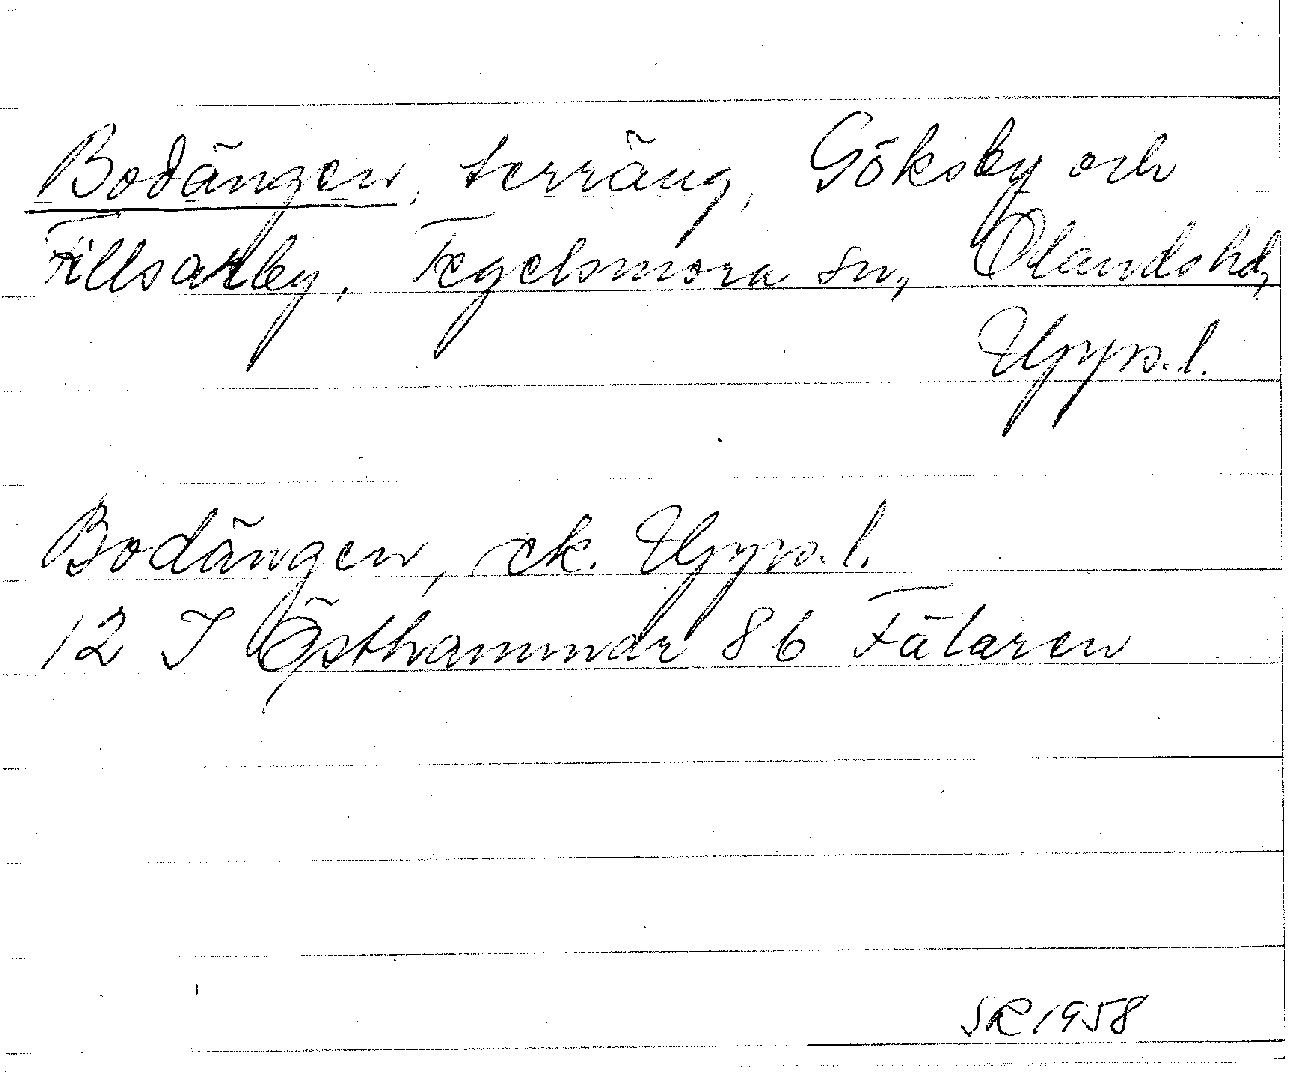 Bodängen, terräng, Göksby och
Fillsarby, Tegelsmora sn, Olands hd,
Upps. l.
Bodängen, ek. Upps. l.
12 I Östhammar 86 Fälaren
SR 1958